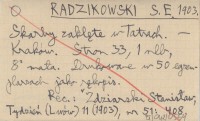 RADZIKOWSKI S.E. 1903.
Skarby zaklęte w Tatrach. —
Kraków. Stron 33, 1 nlb,
8° mała. Drukowane w 50 egzem-
plarzach jako rękopis.
Rec.: Zdziarski Stanisław,
Tydzień (Lwów) 11 (1903), nr 51: 408